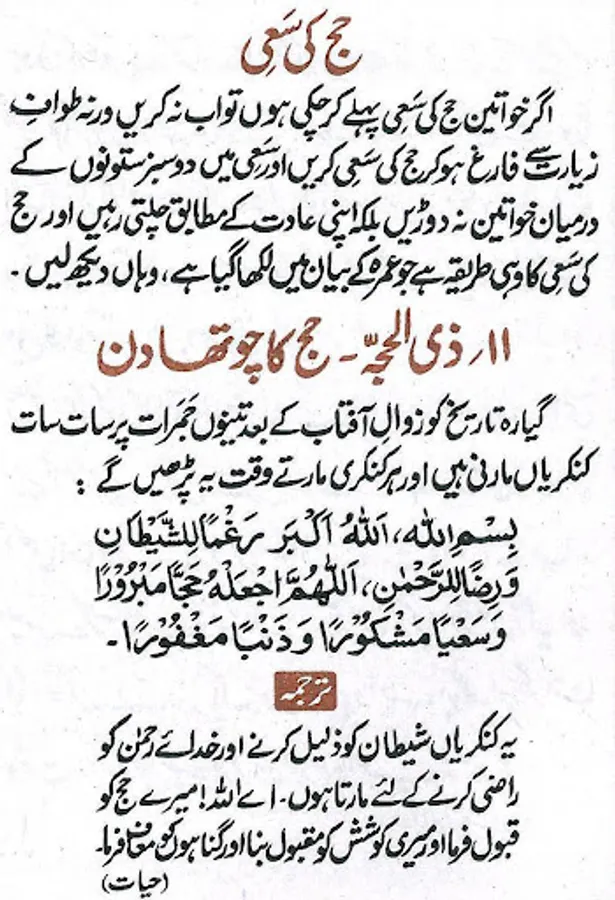 حج کی سَعِی
اگر خواتین حج کی سَعِی پہلے کر چکی ہوں تو اب نہ کریں ورنہ طوافِ
زیارت سے فارغ ہو کر حج کی سَعِی کریں اور سَعِی میں دو سبز ستونوں کے
درمیان خواتین نہ دوڑیں بلکہ اپنی عادت کے مطابق چلتی رہیں اور حج
کی سَعِی کا وہی طریقہ ہے جو عمرہ کے بیان میں لکھا گیا ہے، وہاں دیکھ لیں۔
۱۱؍ ذی الحجّہ۔ حج کا چوتھا دن
گیارہ تاریخ کو زوالِ آفتاب کے بعد تینوں جَمَرات پر سات سات
کنکریاں مارنی ہیں اور ہر کنکری مارتے وقت یہ پڑھیں گے :
بِسْمِ اللهِ، اَللهُ اَكْبَرَ رَغْمًا لِلشَّيْطَانِ
وَرِضًا لِلرَّحْمٰنِ، اَللّٰهُمَّ اجْعَلْهُ حَجًّا مَبْرُوْرًا
وَسَعْيًا مَشْكُوْرًا وَذَنْبًا مَغْفُوْرًا۔
ترجمہ
یہ کنکریاں شیطان کو ذلیل کرنے اور خدائے رحمٰن کو
راضی کرنے کے لئے مارتا ہوں۔ اے اللہ! میرے حج کو
قبول فرما اور میری کوشش کو مقبول بنا اور گناہوں کو معاف فرما۔
(حیات)